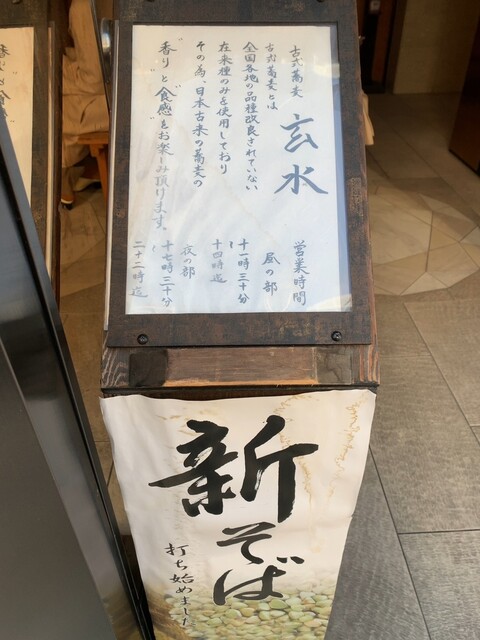 古式蕎麦
玄水
古式蕎麦とは
全国各地の品種改良されていない
在来種のみを使用しており
その為、日本古来の蕎麦の
"香り"と"食感"をお楽しみ頂けます。
営業時間
昼の部
十一時三十分
～
十四時迄
夜の部
十七時三十分
～
二十二時迄
新そば
打ち始めました